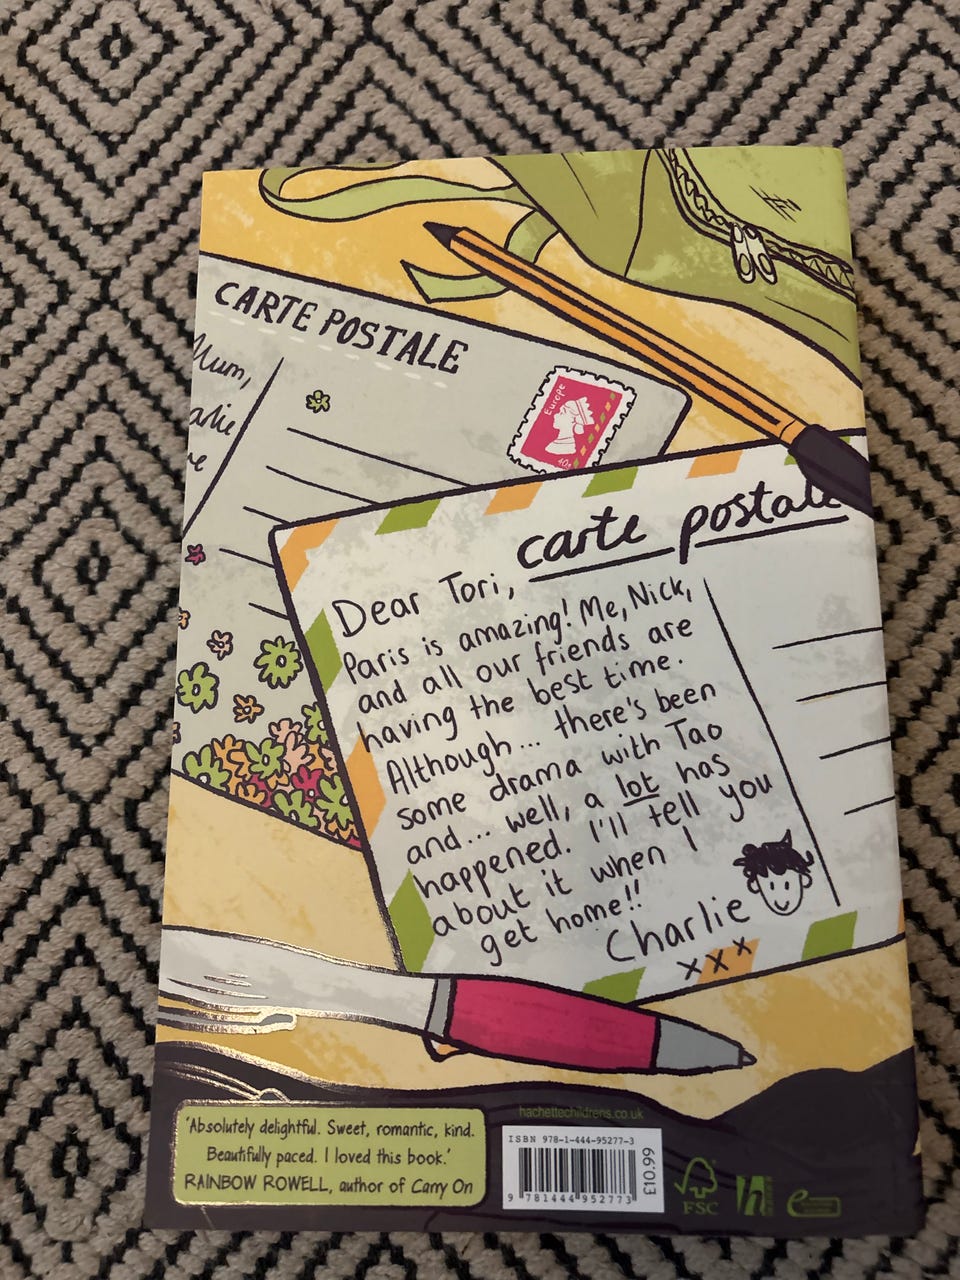 CARTE POSTALE
Mum,
Europe
carte postale
Dear Tori,
Paris is amazing! Me, Nick,
and all our friends are
having the best time.
Although... there's been
some drama with Tao
and... well, a lot has
happened. I'll tell you
about it when I
get home!!
Charlie
x x x
'Absolutely delightful. Sweet, romantic, kind.
Beautifully paced. I loved this book.'
RAINBOW ROWELL, author of Carry On
hachettechildrens.co.uk
ISBN 978-1-444-95277-3
9 781444 952773
£10.99
FSC
h
e